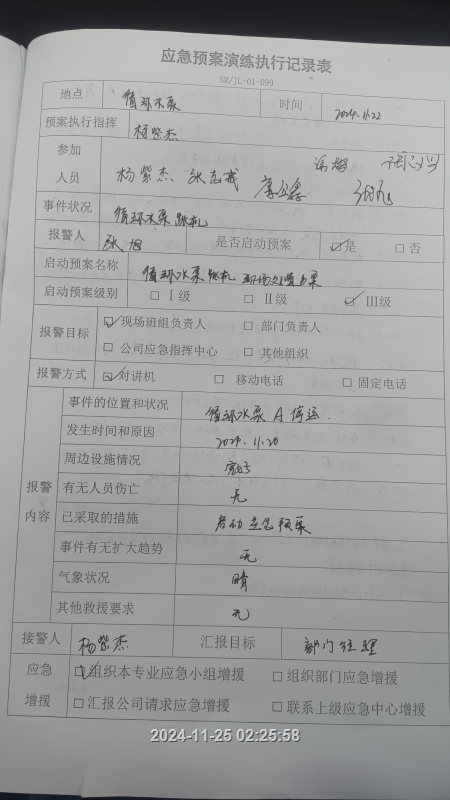 应急预案演练执行记录表
SR/JL-01-099
地点 循环水泵 时间 2024.11.22
预案执行指挥 杨紫杰
参加
人员 杨紫杰、张志成
事件状况 循环水泵跳机
报警人 张旭 是否启动预案 ☑是 □否
启动预案名称 循环水泵跳机现场处置方案
启动预案级别 □Ⅰ级 □Ⅱ级 ☑Ⅲ级
报警目标 ☑现场班组负责人 □部门负责人
□公司应急指挥中心 □其他组织
报警方式 ☑对讲机 □移动电话 □固定电话
报警
内容
事件的位置和状况 循环水泵A停运.
发生时间和原因 2024.11.20
周边设施情况 完好
有无人员伤亡 无
已采取的措施 启动应急预案
事件有无扩大趋势 无
气象状况 晴
其他救援要求 无
接警人 杨紫杰 汇报目标 部门经理
应急
增援
☑组织本专业应急小组增援 □组织部门应急增援
□汇报公司请求应急增援 □联系上级应急中心增援
2024-11-25 02:25:58